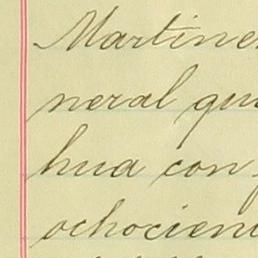 Martine
neral qu
hua con
ochocien